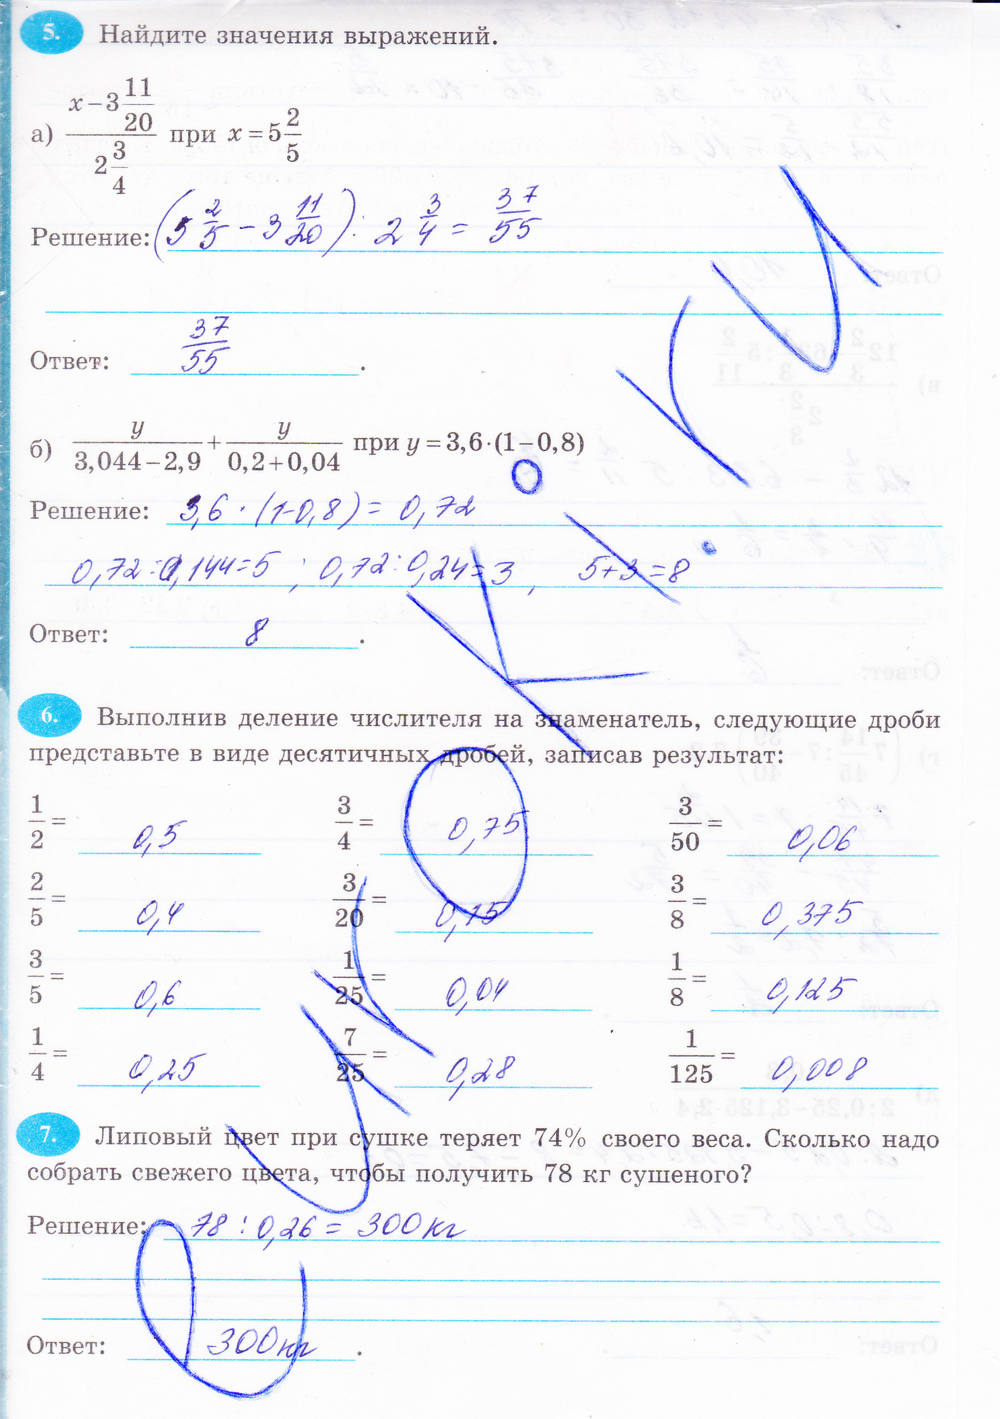 5. Найдите значения выражений.
а) (x − 3 11/20) / (2 3/4) при x = 5 2/5
Решение: (5 2/5 − 3 11/20) : 2 3/4 = 37/55
Ответ: 37/55.
б) y/(3,044 − 2,9) + y/(0,2 + 0,04) при y = 3,6·(1 − 0,8)
Решение: 3,6 · (1-0,8) = 0,72
0,72 : 0,144 = 5 ; 0,72 : 0,24 = 3 , 5+3 = 8
Ответ: 8.
6. Выполнив деление числителя на знаменатель, следующие дроби
представьте в виде десятичных дробей, записав результат:
1/2 = 0,5 3/4 = 0,75 3/50 = 0,06
2/5 = 0,4 3/20 = 0,15 3/8 = 0,375
3/5 = 0,6 1/25 = 0,04 1/8 = 0,125
1/4 = 0,25 7/25 = 0,28 1/125 = 0,008
7. Липовый цвет при сушке теряет 74% своего веса. Сколько надо
собрать свежего цвета, чтобы получить 78 кг сушеного?
Решение: 78 : 0,26 = 300 кг
Ответ: 300 кг.